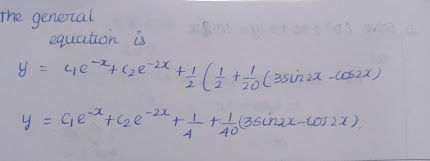 The general
equation is
y = c₁e^-x + c₂e^-2x + 1/2 (1/2 + 1/20 (3sin2x - cos2x)
y = C₁e^-x + C₂e^-2x + 1/4 + 1/40 (3sin2x - cos2x).